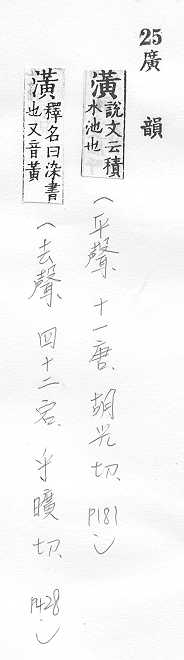 25廣韻
潢說文云積水池也(平聲、十一唐、胡光切、P181)
潢釋名曰染書也又音黃(去聲、四十二宕、乎曠切、P428)